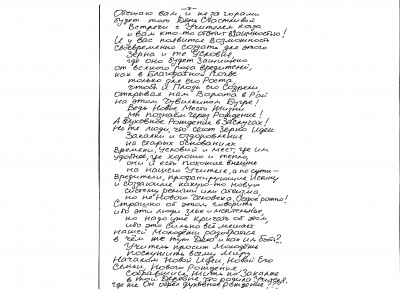 -2-
Обещаю вам, и не за горами
будет тот День Счастливый
Встречи с Учителем, когда
и вам кто-то ответит взаимностью!
И у вас появится возможность
Своевременно создать для этого
Зерна и те Условия,
где оно будет защищено
от всякого рода вредителей,
как в Благодатной Почве
только для его Роста,
чтобы и Плоды его Созрели
открывая нам Ворота в Рай
на этом Чувилкином Бугре!
Ведь Новое Место Жизни
мы познаём через Рождение!
А Духовное Рождение в Заслугах!
Но те люди, что сеют Зерно Идеи
Закалки и оздоровления
на старых основаниях
Времени, Условий и мест, где им
Удобнее, где хорошо и тепло,
они и есть похожие внешне
на нашего Учителя, а по сути -
Вредители, профанирующие Истину
и создающие какую-то новую
систему религии или атеизма,
но не Нового Человека, Самое ротно!
Страшно об этом говорить
ибо эти люди злые и мстительные,
но надо уже кричать об этом,
ибо это сильно всё мешает
нашей Молодёжи разобраться
в чём же тут Дело и как им быть?.
Учитель просит Молодёжь
послужить всему Миру
Началом Новой Идеи, Новой Его
Семьи, Нового Рождения
Собравшись Жить по Закалке
в той Деревне, что родила Учителя,
где же Он обрёл духовное рождение!!!